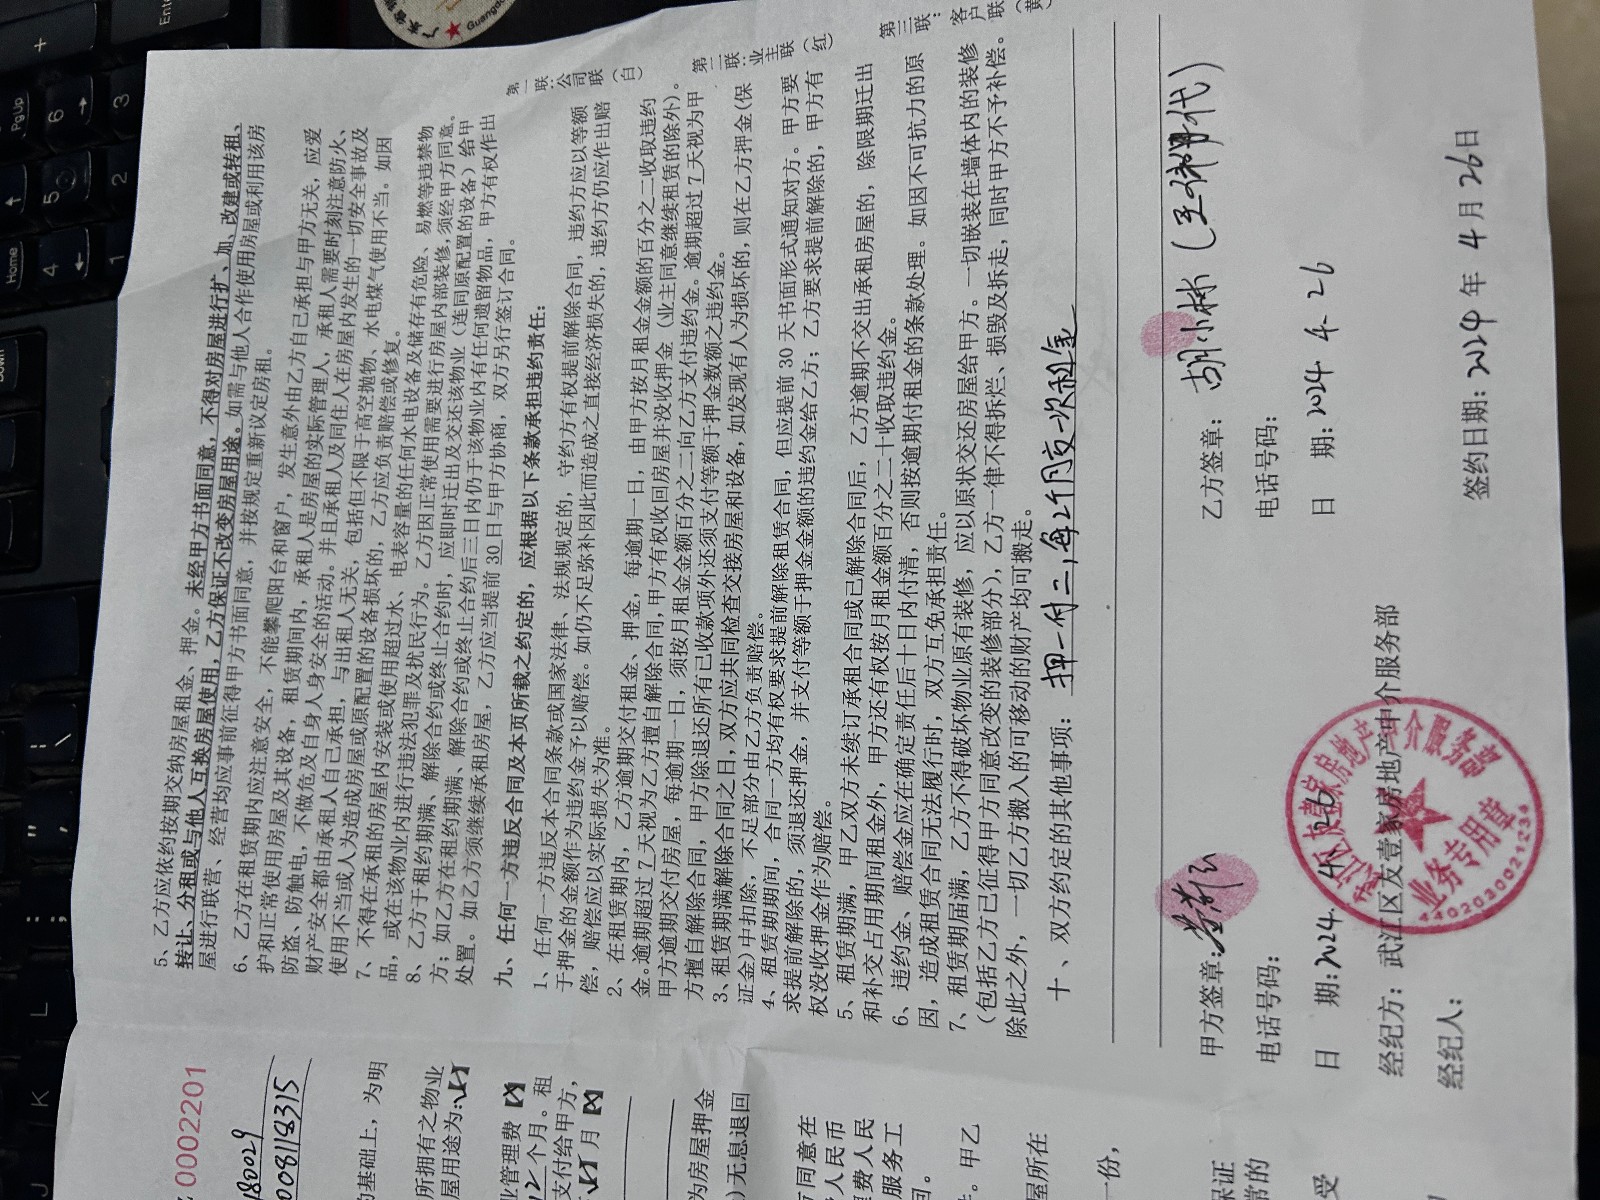 5、乙方应依约按期交纳房屋租金、押金。未经甲方书面同意，不得对房屋进行扩、加、改建或转租、
转让、分租或与他人互换房屋使用，乙方保证不改变房屋用途。如需与他人合作使用房屋或利用该房
屋进行联营、经营均应事前征得甲方书面同意，并按规定重新议定房租。
6、乙方在租赁期内应注意安全，不能攀爬阳台和窗户，发生意外由乙方自己承担与甲方无关，应爱
护和正常使用房屋及其设备，租赁期间内，承租人是房屋的实际管理人，承租人需要时刻注意防火、
防盗、防触电，不做危及自身人身安全的活动。并且承租人及同住人在房屋内发生的一切安全事故及
财产安全都由承租人自己承担，与出租人无关，包括但不限于高空抛物、水电煤气使用不当。如因
使用不当或人为造成房屋或原配置的设备损坏的，乙方应负责赔偿或修复。
7、不得在承租的房屋内安装或使用超过水、电表容量的任何水电设备及储存有危险、易燃等违禁物
品，或在该物业内进行违法犯罪及扰民行为。乙方因正常使用需要进行房屋内部装修，须经甲方同意。
8、乙方于租约期满、解除合约或终止合约时，应即时迁出及交还该物业（连同原配置的设备）给甲
方；如乙方在租约期满、解除合约或终止合约后三日内仍于该物业内有任何遗留物品，甲方有权作出
处置。如乙方须继续承租房屋，乙方应当提前 30 日与甲方协商，双方另行签订合同。
九、任何一方违反合同及本页所载之约定的，应根据以下条款承担违约责任：
1、任何一方违反本合同条款或国家法律、法规规定的，守约方有权提前解除合同，违约方应以等额
于押金的金额作为违约金予以赔偿。如仍不足弥补因此而造成之直接经济损失的，违约方仍应作出赔
偿，赔偿应以实际损失为准。
2、在租赁期内，乙方逾期交付租金、押金，每逾期一日，由甲方按月租金金额的百分之二收取违约
金。逾期超过 7 天视为乙方擅自解除合同，甲方有权收回房屋并没收押金（业主同意继续租赁的除外）。
甲方逾期交付房屋，每逾期一日，须按月租金金额百分之二向乙方支付违约金。逾期超过 7 天视为甲
方擅自解除合同，甲方除退还所有已收款项外还须支付等额于押金数额之违约金。
3、租赁期满解除合同之日，双方应共同检查交接房屋和设备，如发现有人为损坏的，则在乙方押金（保
证金）中扣除，不足部分由乙方负责赔偿。
4、租赁期期间，合同一方均有权要求提前解除租赁合同，但应提前 30 天书面形式通知对方。甲方要
求提前解除的，须退还押金，并支付等额于押金金额的违约金给乙方；乙方要求提前解除的，甲方有
权没收押金作为赔偿。
5、租赁期满，甲乙双方未续订承租合同或已解除合同后，乙方逾期不交出承租房屋的，除限期迁出
和补交占用期间租金外，甲方还有权按月租金额百分之二十收取违约金。
6、违约金、赔偿金应在确定责任后十日内付清，否则按逾期付租金的条款处理。如因不可抗力的原
因，造成租赁合同无法履行时，双方互免承担责任。
7、租赁期届满，乙方不得破坏物业原有装修，应以原状交还房屋给甲方。一切嵌装在墙体内的装修
（包括乙方已征得甲方同意改变的装修部分），乙方一律不得拆烂、损毁及拆走，同时甲方不予补偿。
除此之外，一切乙方搬入的可移动的财产均可搬走。
十、双方约定的其他事项：押一付二，每2个月交一次租金
第一联：公司联（白）
第二联：业主联（红）
第三联：客户联（黄）
甲方签章：
乙方签章：胡小彬（代）
电话号码：
电话号码：
日 期：2024 4. 26
日 期：2024 4. 26
经纪方：武江区友壹家房地产中介服务部
经纪人：
签约日期：2024 年 4 月 26 日
武江区友壹家房地产中介服务部
业务专用章
4402030021236
0002201
18029
0081118315
的基础上，为明
所拥有之物业
屋用途为：
业管理费
12 个月。租
支付给甲方，
月
为房屋押金
）无息退回
方同意在
人民币
理费人民
服务工
回。
。甲乙
屋所在
一份，
保证
常的
受
Home
PgUp
Enter
4
5
6
1
2
3
+
J
K
L